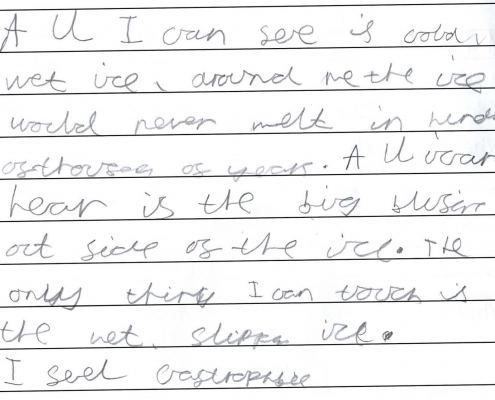 All I can see is cold,
wet ice, around me the ice
world never melt in hund
of thouses of years. All i can
hear is the big
out side of the ice. The
only thing I can touch is
the wet, slippy ice.
I feel